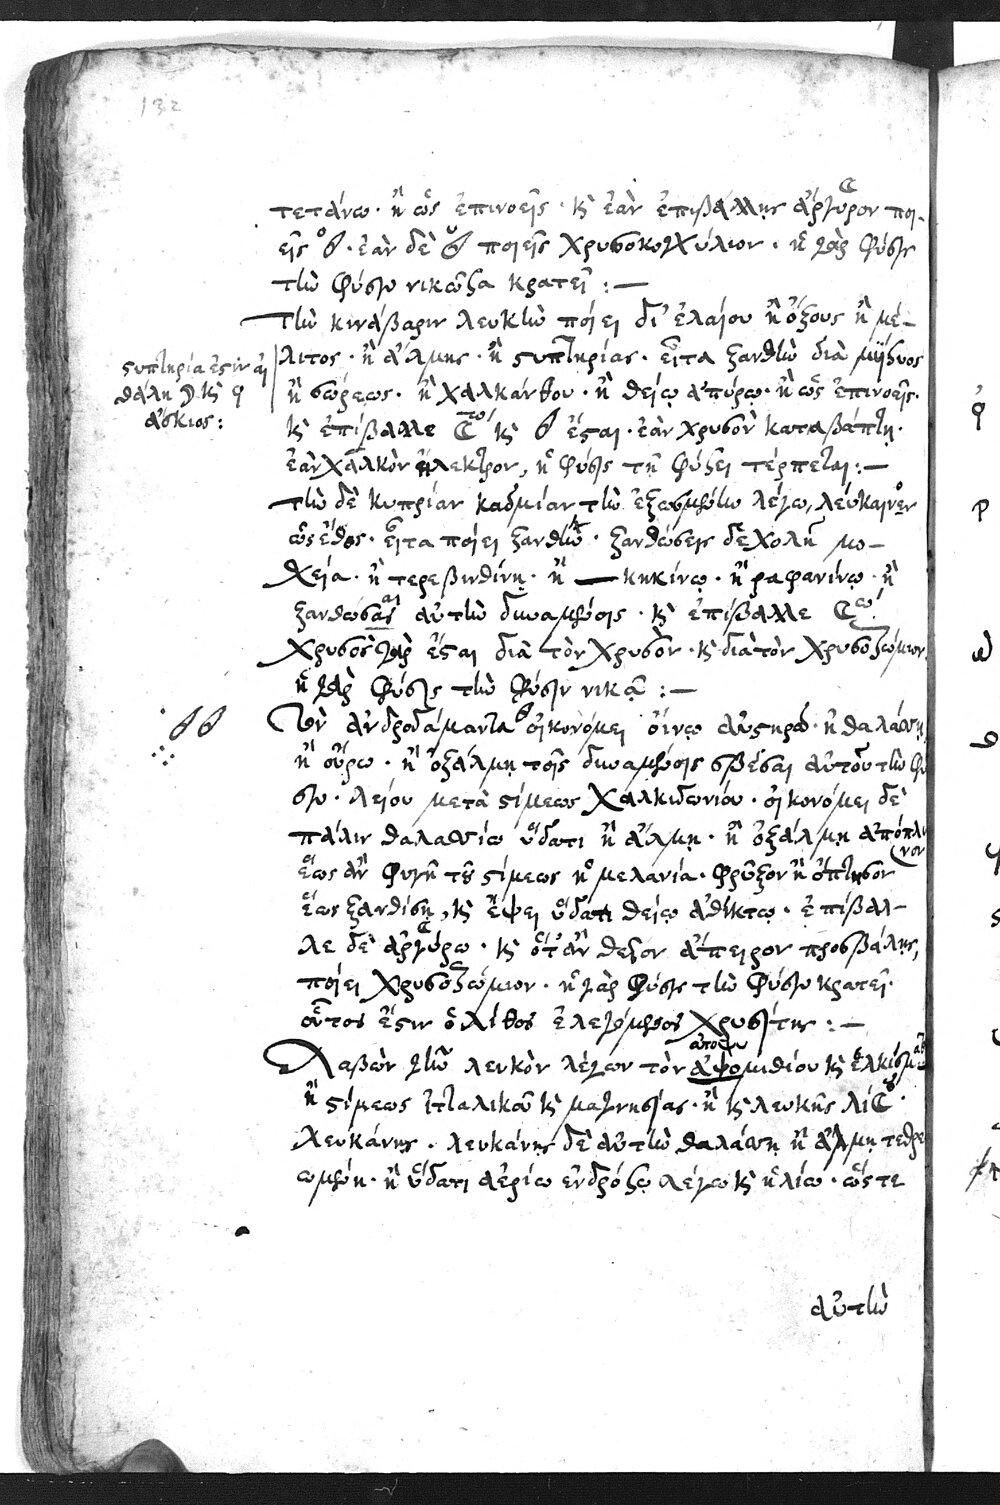 132
τετάνω· ἢ ὡς ἐπινοεῖς· κὶ ἐὰν ἐπιβάλλῃς ἄργυρον ποι-
εῖς· ἐὰν δὲ ποιεῖς χρυσοκογχύλιον· ἡ γὰρ φύσις
τὴν φύσιν νικῶσα κρατεῖ:—
Τὴν κινάβαριν λευκὴν ποίει δι' ἐλαίου ἢ ὄξους ἢ μέ-
λιτος· ἢ ἅλμης· ἢ στυπτηρίας· εἶτα ξανθὴν διὰ μίσυος
ἢ σώρεως· ἢ χαλκάνθου· ἢ θείῳ ἀπύρῳ· ἢ ὡς ἐπινοεῖς·
κὶ ἐπίβαλλε κὶ ἔσται· ἐὰν χρυσὸν καταβάπτῃ·
ἐὰν χαλκὸν ἤλεκτρον, ἡ φύσις τῇ φύσει τέρπεται:—
στυπτηρία ἐστὶν
θάλη κὶ
ἄσκιος:
τὴν δὲ κυπρίαν καδμίαν τὴν ἐξωσμένην λέγω, λεύκαινον
ὡς ἔθος· εἶτα ποίει ξανθὴν· ξανθώσεις δὲ χολῇ μο-
χεία· ἢ τερεβινθίνῃ· ἢ — κηκίνῳ· ἢ ραφανίνῳ· ἢ
ξανθῶσαι αὐτὴν δυναμένοις· κὶ ἐπίβαλλε
χρυσὸς γὰρ ἔσται διὰ τὸν χρυσὸν· κὶ διὰ τὸν χρυσοζώμιον·
ἡ γὰρ φύσις τὴν φύσιν νικᾷ:—
Τὸν ἀνδροδάμαντα οἰκονόμει οἴνῳ αὐστηρῷ· ἢ θαλάσσῃ
ἢ οὔρῳ· ἢ ὀξάλμῃ τοῖς δυναμένοις σβέσαι αὐτοῦ τὴν φύ
σιν· λείου μετὰ στίμεως χαλκιδονίου· οἰκονόμει δὲ
πάλιν θαλασσίῳ ὕδατι ἢ ἅλμῃ· ἢ ὀξάλμῃ ἀπόπλυ
νον
ἕως ἂν φυγῇ τοῦ στίμεως ἡ μελανία· φρῦξον ἢ ὄπτησον
ἕως ξανθίσῃ, κὶ ἕψει ὕδατι θείῳ ἀθίκτῳ· ἐπίβαλ-
λε δὲ ἀργύρῳ· κὶ ὅταν θεῖον ἄπειρον προσβάλῃς,
ποίει χρυσοζώμιον· ἡ γὰρ φύσις τὴν φύσιν κρατεῖ·
οὗτός ἐστιν ὁ λίθος ὁ λεγόμενος χρυσίτης:—
Λαβὼν γῆν λευκὸν λέγων τὸν ἀψομιθίου κὶ
ἢ στίμεως ἰταλικοῦ κὶ μαγνησίας· ἢ κὶ λευκῆς
λευκάνῃς· λευκάνῃς δὲ αὐτὴν θαλάσσῃ ἢ ἅλμῃ τεθρε
ωμένῃ· ἢ ὕδατι ἀερίῳ ἐνδρόσῳ λέγω κὶ ἡλίῳ· ὥστε
αὐτὴν